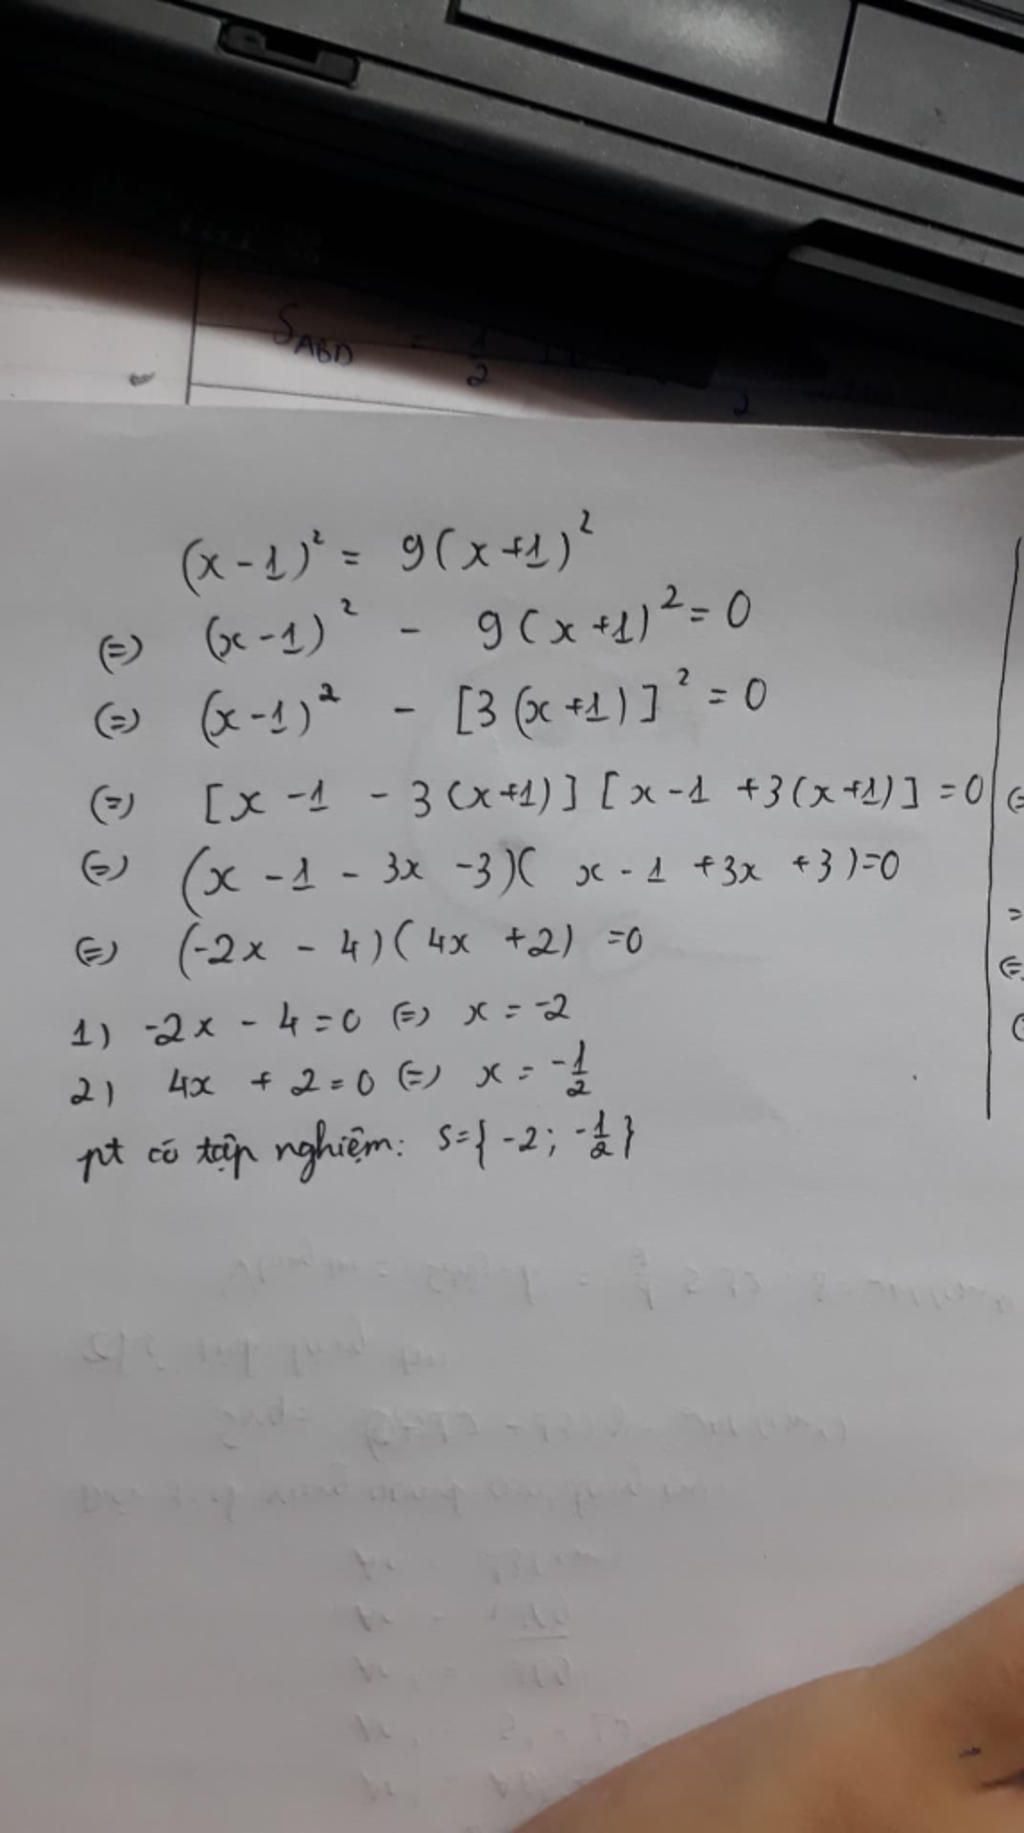 S_ABD = 1/2
2
(x-1)² = 9(x+1)²
(=) (x-1)² - 9(x+1)² = 0
(=) (x-1)² - [3(x+1)]² = 0
(=) [x-1 - 3(x+1)][x-1 +3(x+1)] = 0
(=) (x-1-3x-3)(x-1+3x+3)=0
(=) (-2x-4)(4x+2) =0
1) -2x-4=0 (=) x=-2
2) 4x+2=0 (=) x=-1/2
pt có tập nghiệm: S={-2; -1/2}